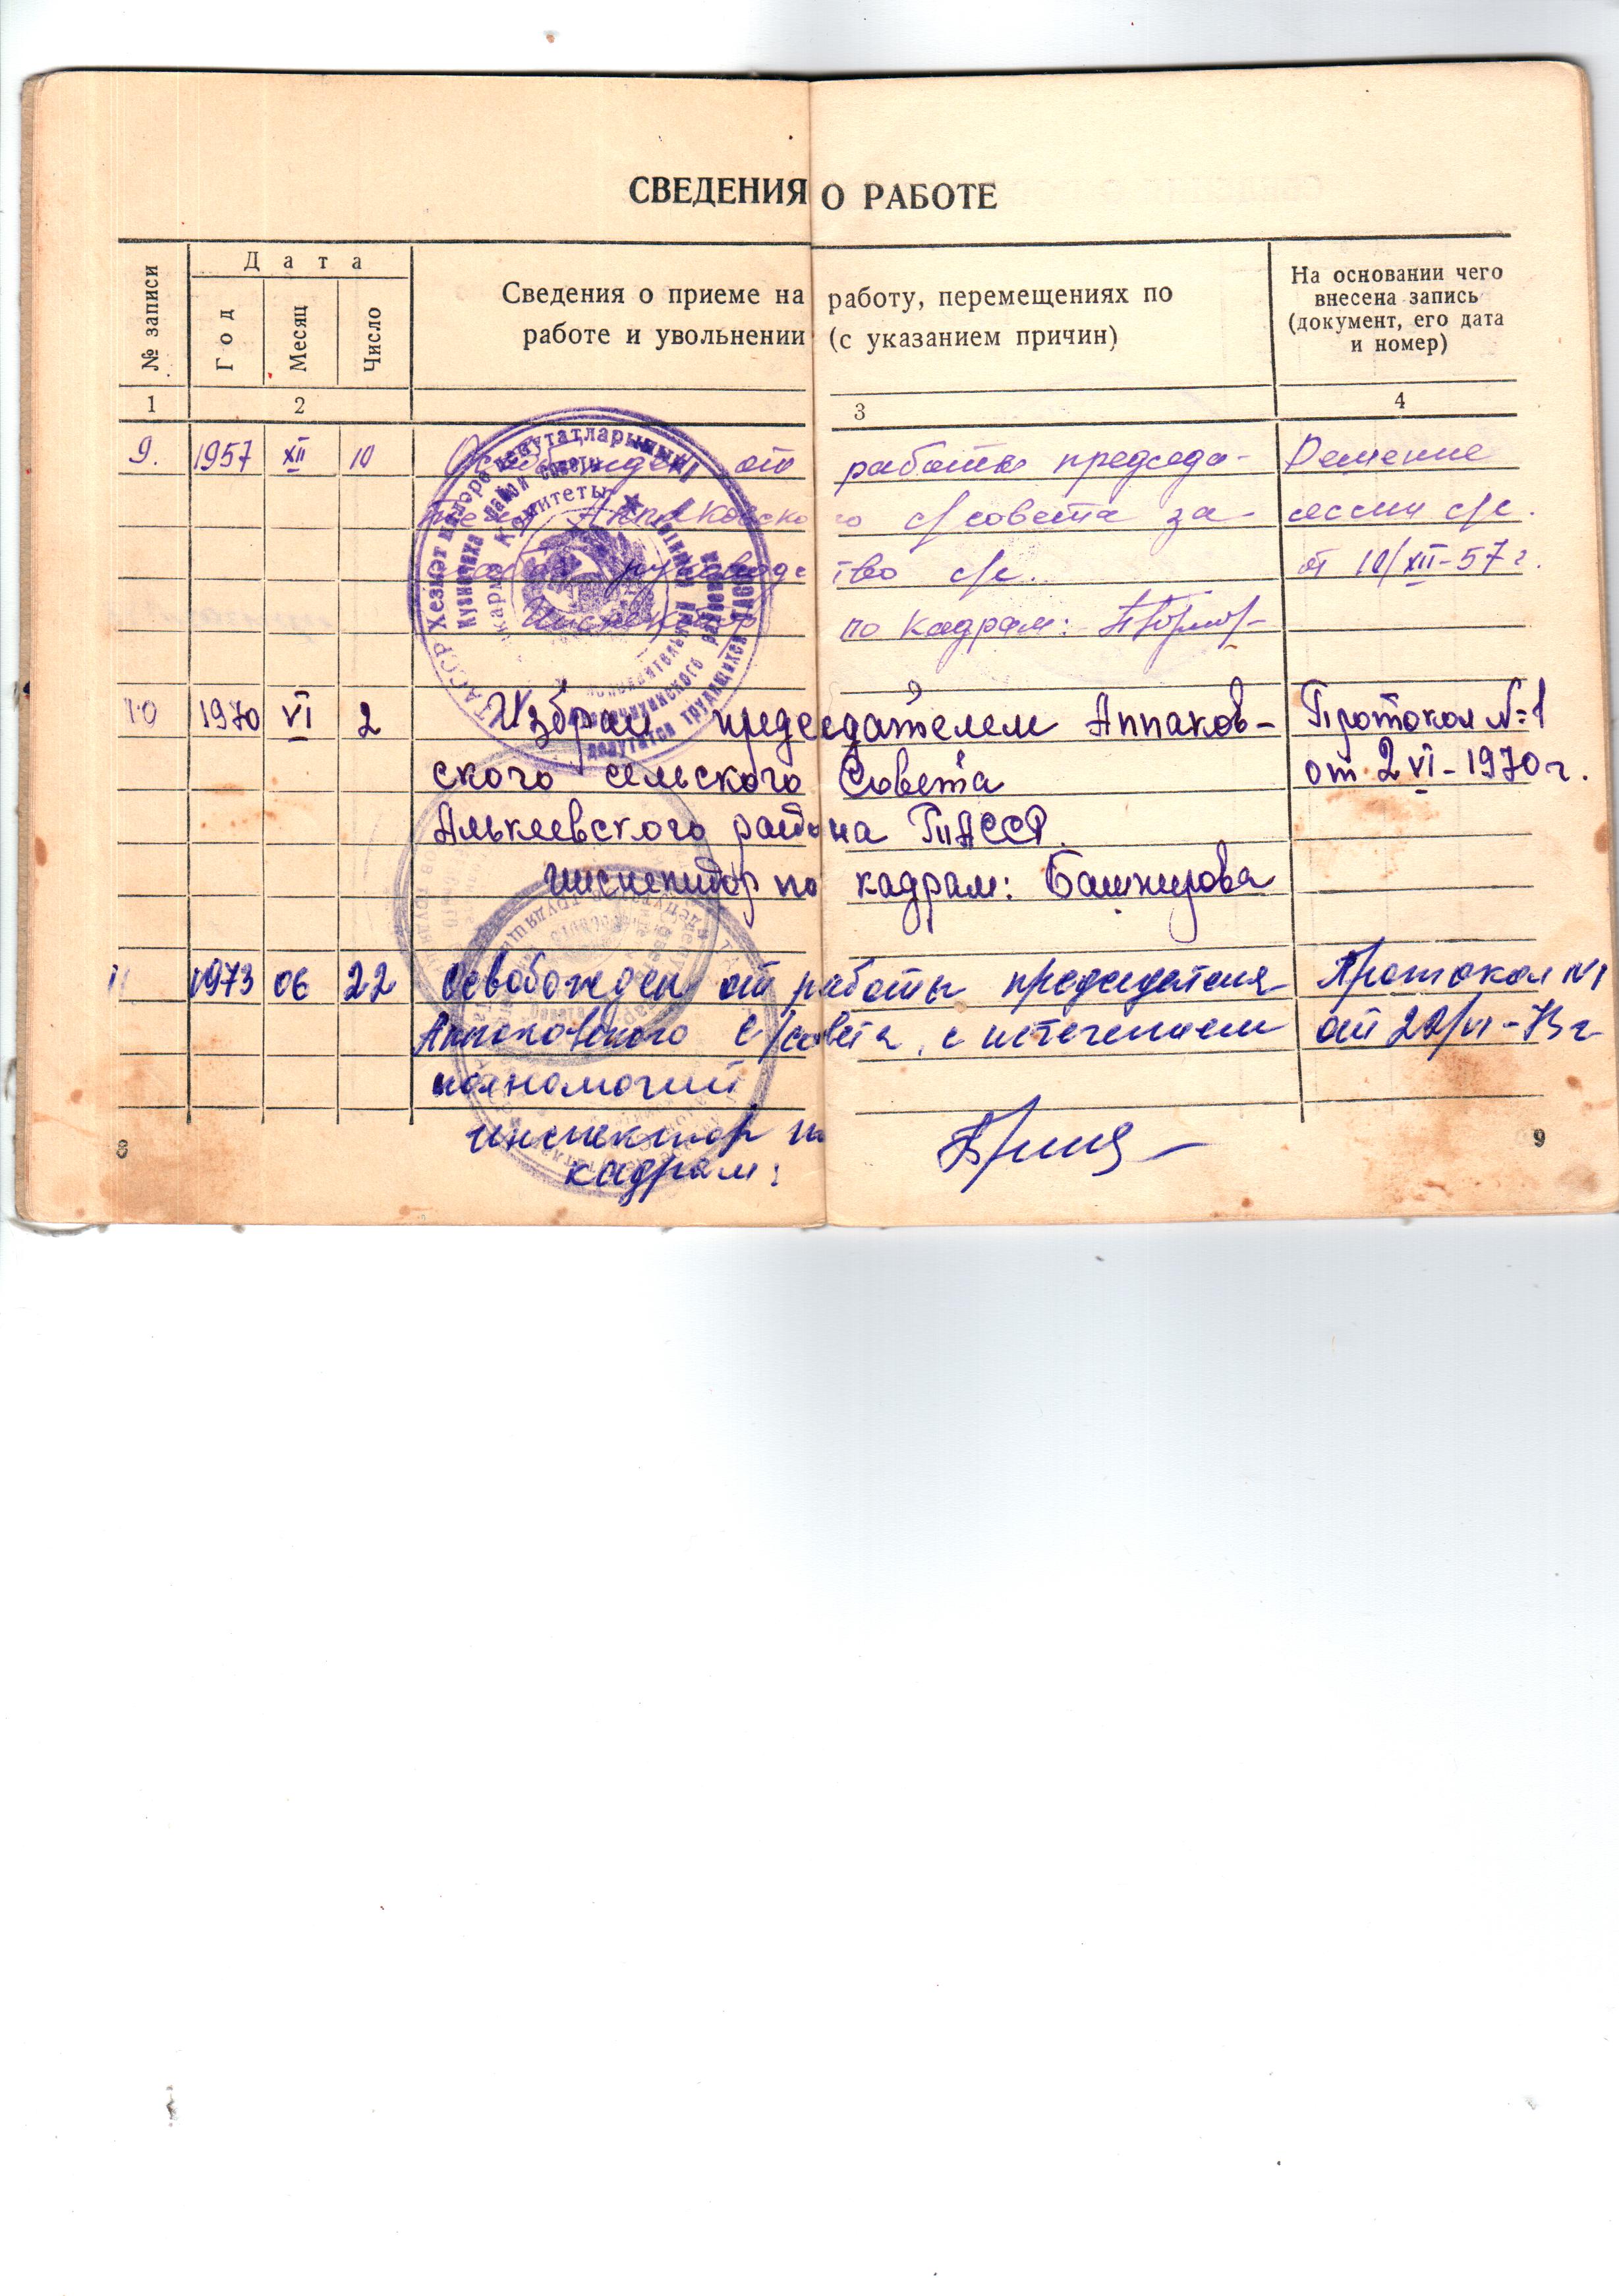 СВЕДЕНИЯ О РАБОТЕ
№ записи
Дата
Год
Месяц
Число
Сведения о приеме на работу, перемещениях по
работе и увольнении (с указанием причин)
На основании чего
внесена запись
(документ, его дата
и номер)
1 2 3 4
9. 1957 XII 10 Освобожден от работы председа- Решение
Аппаковского с/совета за- сессии с/с.
руководство с/с. от 10/XII-57 г.
Инспектор по кадрам:
10 1970 VI 2 Избран председателем Аппаков- Протокол №1
ского сельского Совета от 2 VI-1970 г.
Алькеевского района ТАССР.
инспектор по кадрам: Башкирова
11 1973 06 22 Освобожден от работы председателя Протокол №1
Аппаковского с/совета, с истечением от 22/VI-73 г
полномочий
инспектор по
кадрам:
8 9
ТАССР Хезмәт ияләре депутатларының
Кузнечиха район Советы
Башкарма Комитеты
депутатов трудящихся ТАССР